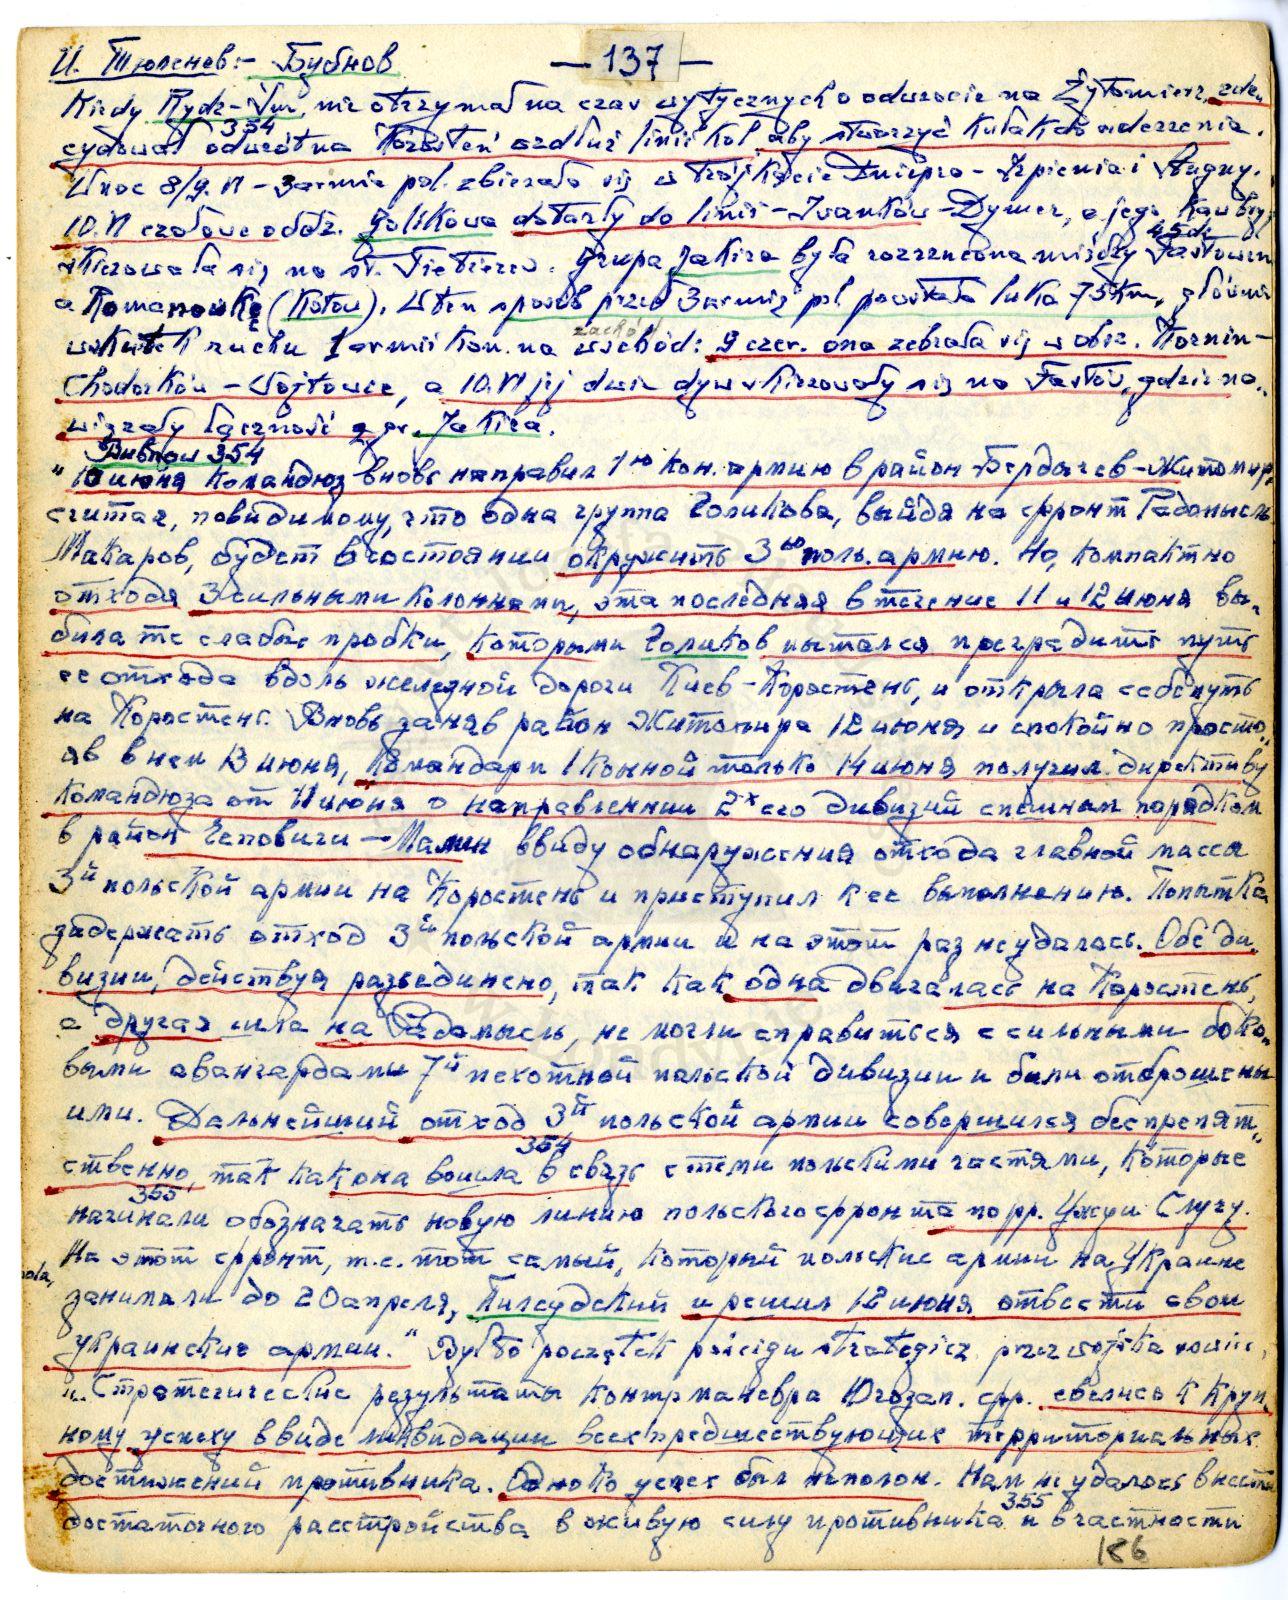 И. Тюленев:- Бубнов
— 137 —
Kiedy Rydz-Śm. nie otrzymał na czas wytycznych o odwrocie na Żytomierz, zde-
354
cydował odwrót na Korosteń wzdłuż linii kol. aby stworzyć kułak do uderzenia.
W noc 8/9.VI – 3 armia pol. zbierała się w trójkącie Dniepra – Irpienia i Stugny.
10.VI czołowe oddz. Golikowa dotarły do linii – Iwanków – Dymer, a jego kaw. bryg.
skierowała się na st. Tietierew. Grupa Jakira była rozrzucona między Fastowem
45 dk
a Romanowkę (Kotow). W ten sposób przed 3 armią pol powstała luka 75 km, głównie
wskutek ruchu 1 armii kon. na wschód: 9 czer. ona zebrała się w obsz. Kornin –
zachód
Chodorków – Wojtowce, a 10.VI jej dwie dyw skierowały się na Fastów, gdzie na-
wiązały łączność z gr. Jakira.
Bubnow 354
"10 июня Командюз вновь направил 1ю кон. армию в район Бердичев – Житомир,
считая, повидимому, что одна группа Голикова, выйдя на фронт Радомысль
Макаров, будет в состоянии окружить 3ю поль. армию. Но, компактно
отходя 3 сильными колоннами, эта последняя в течение 11 и 12 июня вы-
била те слабые пробки, которыми Голиков пытался преградить путь
ее отхода вдоль железной дороги Киев – Коростень, и открыла себе путь
на Коростень. Вновь заняв район Житомира 12 июня и спокойно просто-
яв в нем 13 июня, Командарм 1 Конной только 14 июня получил директиву
Командюза от 11 июня о направлении 2х его дивизий спешным порядком
в район Чеповичи – Малин ввиду обнаружения отхода главной массы
3й польской армии на Коростень и приступил к ее выполнению. Попытка
задержать отход 3й польской армии и на этот раз не удалась. Обе ди-
визии, действуя разъединено, так как одна двигалась на Коростень,
а другая шла на Радомысль, не могли справиться с сильными боко-
выми авангардами 7й пехотной польской дивизии и были отброшены
ими. Дальнейший отход 3й польской армии совершился беспрепят-
354
ственно, так как она вошла в связь с теми польскими частями, которые
355
начинали обозначать новую линию польского фронта по рр. Уж и Случу.
На этот фронт, т.е. тот самый, который польские армии на Украине
занимали до 20 апреля, Пилсудский и решил 12 июня отвести свои
украинские армии." Był to początek pościgu strategicz. przez wojska sowiec.
"Стратегические результаты контрманевра Югозап. фр. свелись к круп-
ному успеху в виде ликвидации всех предшествующих территориальных
достижений противника. Однако успех был неполон. Нам не удалось внести
355
достаточного расстройства в живую силу противника и в частности
186